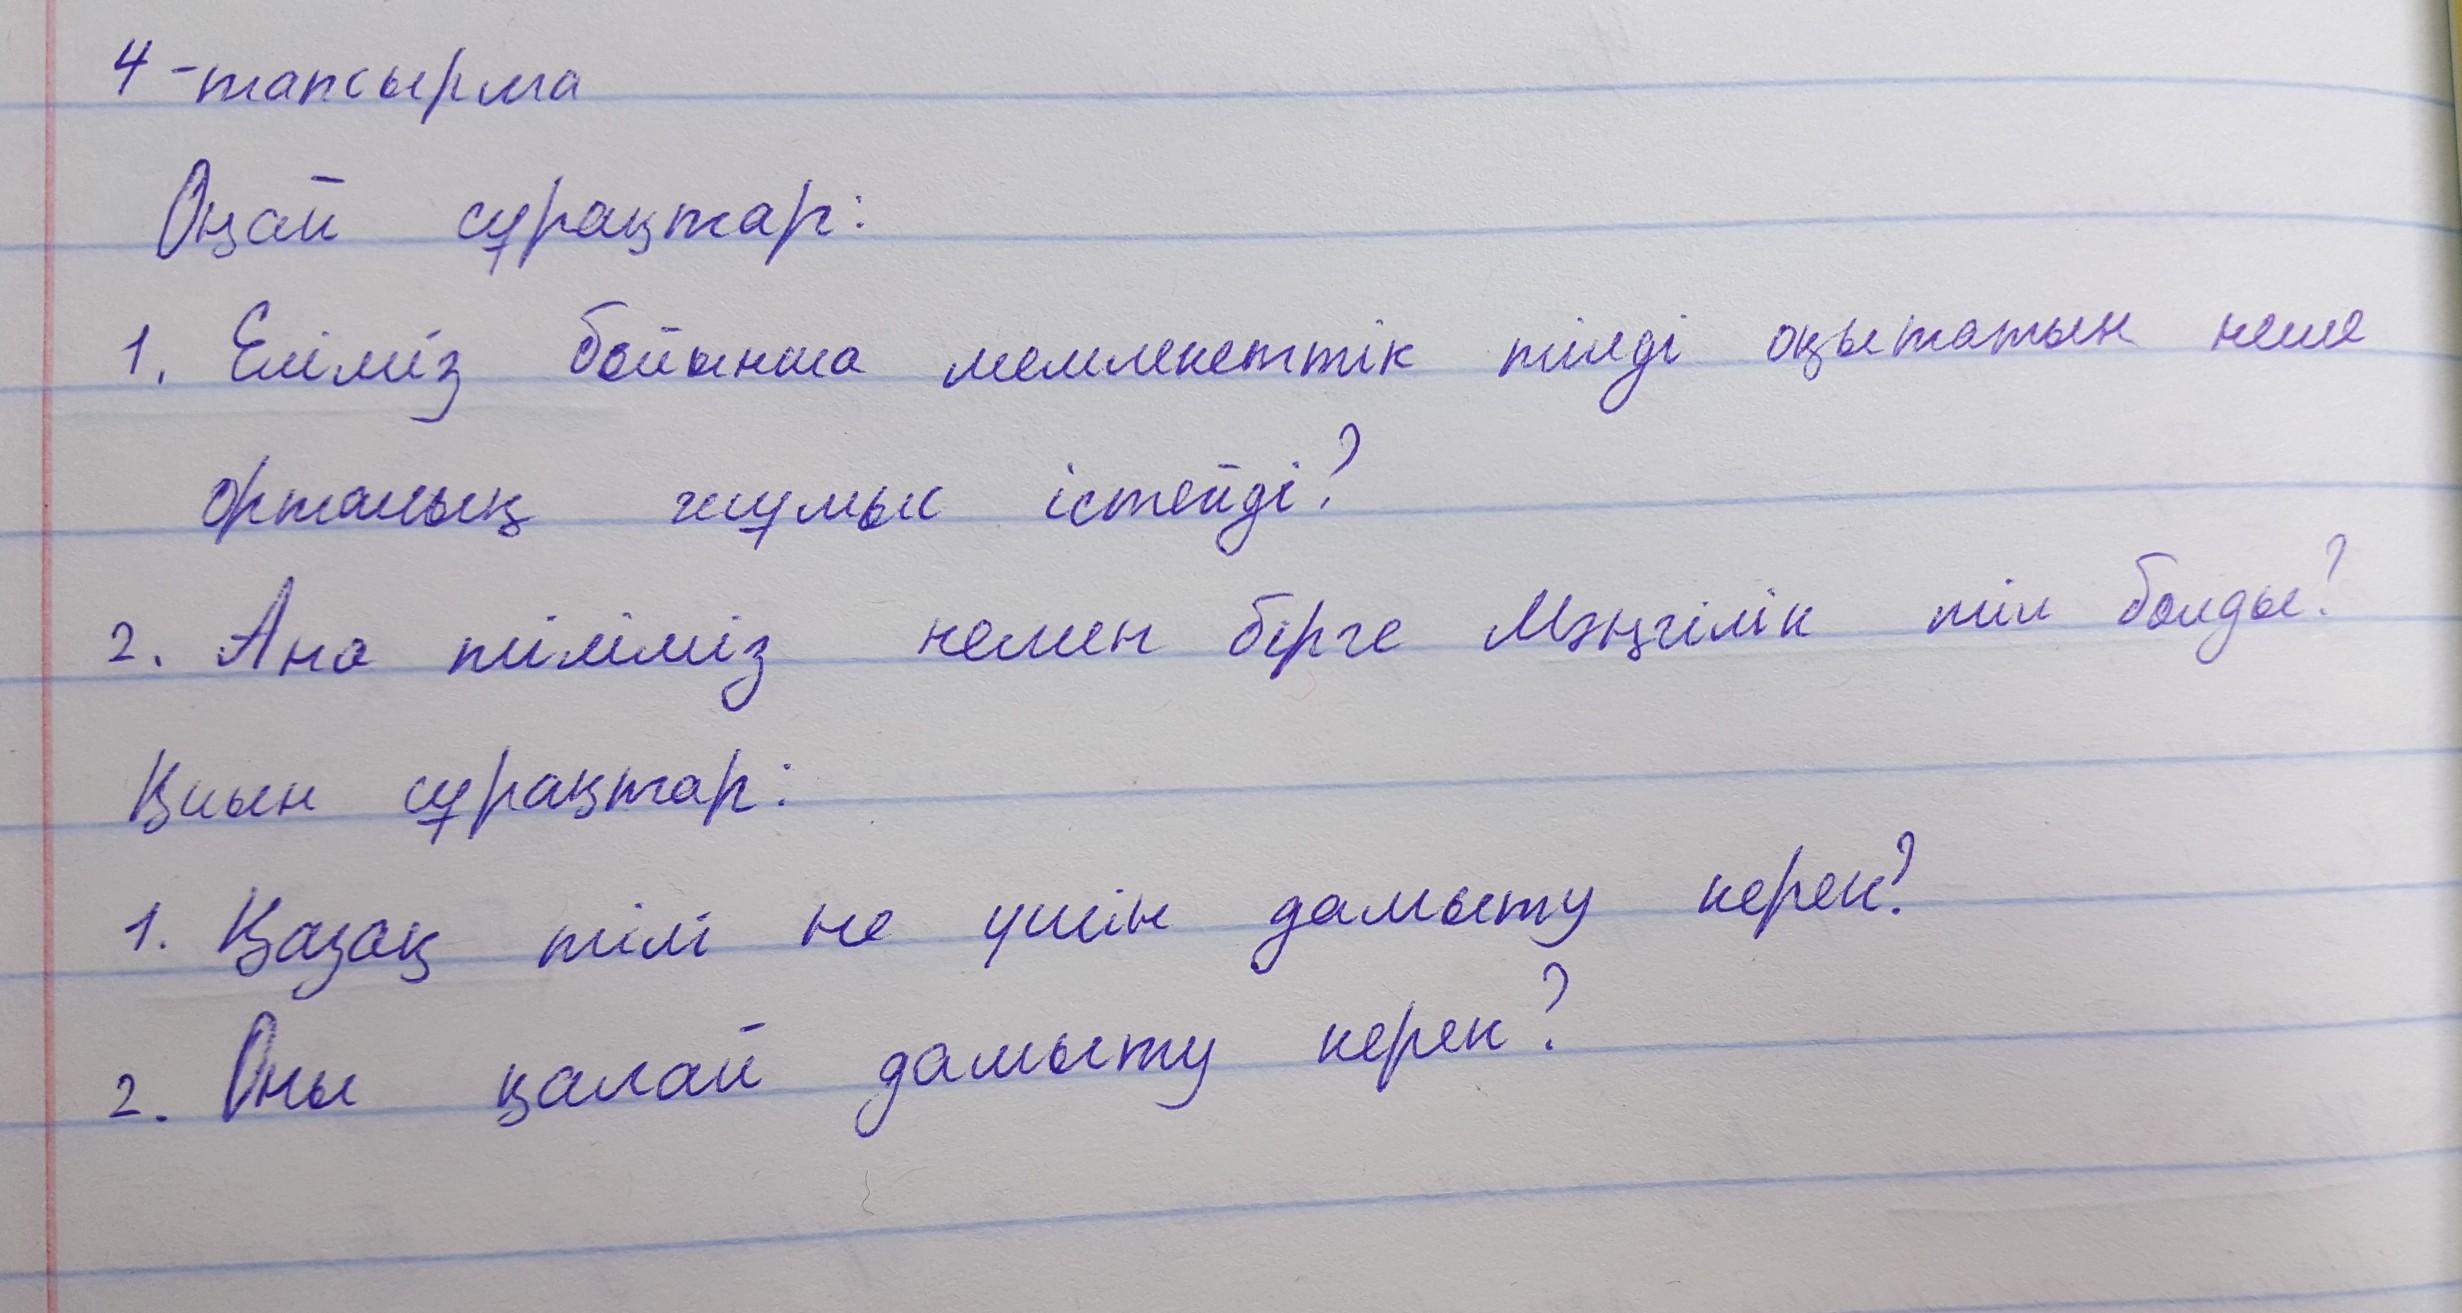 4-тапсырма
Оңай сұрақтар:
1. Еліміз бойынша мемлекеттік тілді оқытатын неше
орталық жұмыс істейді?
2. Ана тіліміз немен бірге Мәңгілік тіл болды?
Қиын сұрақтар:
1. Қазақ тілі не үшін дамыту керек?
2. Оны қалай дамыту керек?